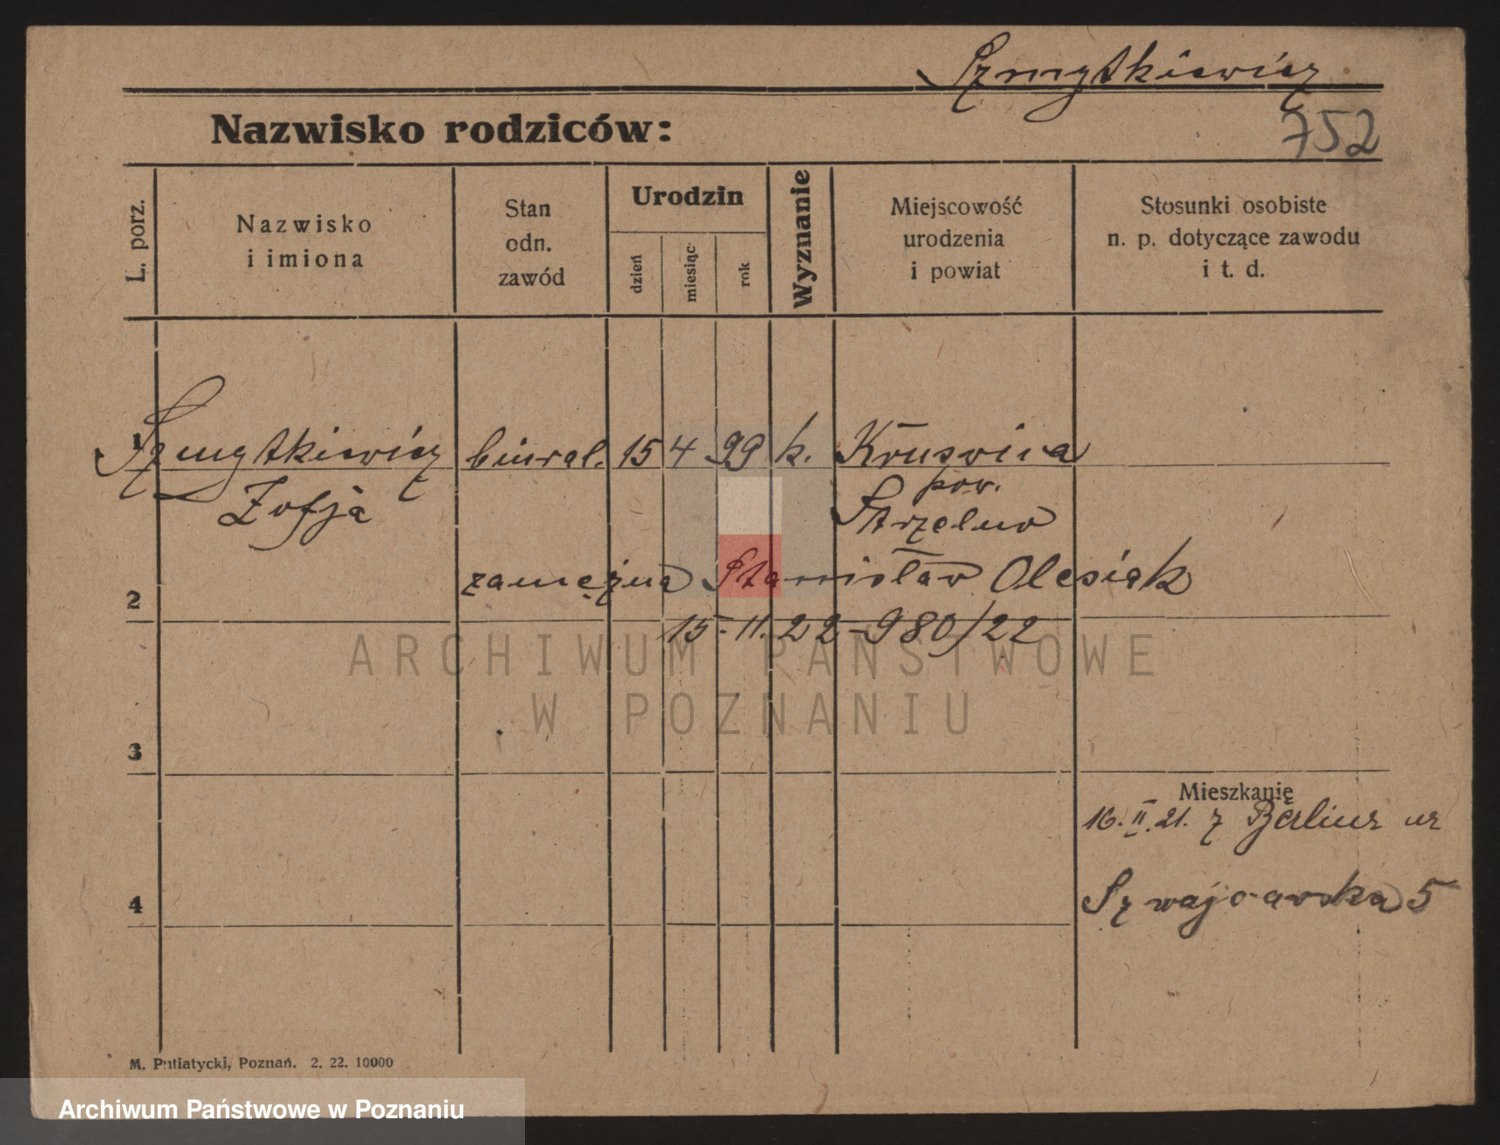 Szmytkiewicz
Nazwisko rodziców:
752
L. porz.
Nazwisko
i imiona
Stan
odn.
zawód
Urodzin
dzień
miesiąc
rok
Wyznanie
Miejscowość
urodzenia
i powiat
Stosunki osobiste
n. p. dotyczące zawodu
i t. d.
1
Szmytkiewicz biural. 15 4 99 k. Kruswica
pow.
Zofja
Strzelno
2
zamężna Stanisław Olesiak
15. 11. 22 - 980/22
ARCHIWUM PAŃSTWOWE
W POZNANIU
3
Mieszkanie
16. II. 21. z Berlina
4
5
M. Putiatycki, Poznań. 2. 22. 10000
Archiwum Państwowe w Poznaniu